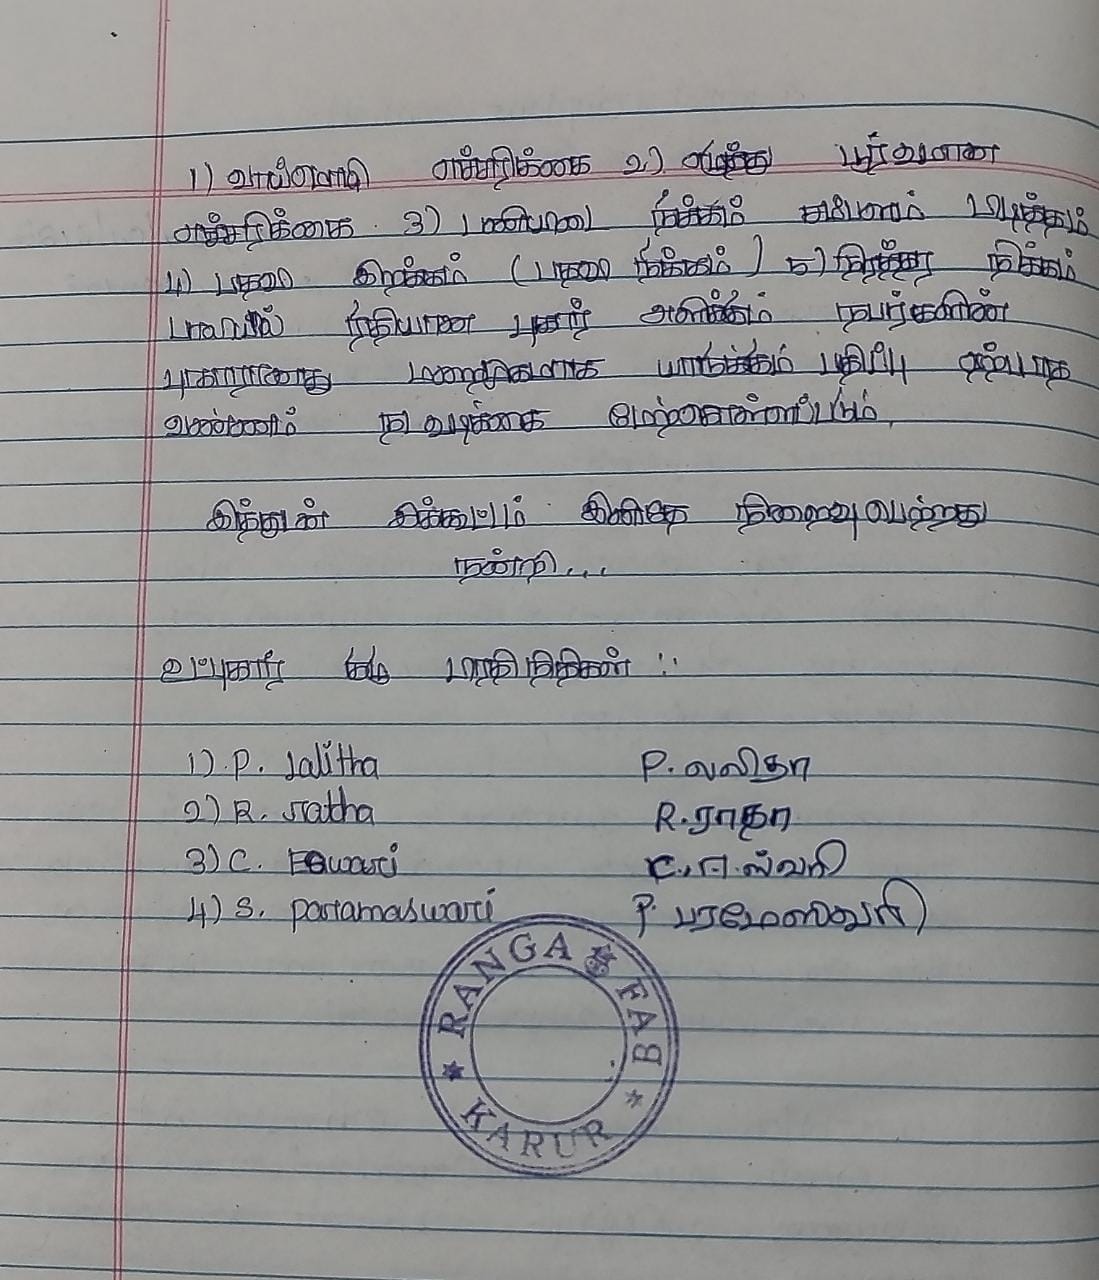 1) வாய்மொழி எச்சரிக்கை 2) எழுத்து பூர்வமான
எச்சரிக்கை 3) பணியிடை நீக்கம் சம்பளம் பிடித்தம்
4) பதவி இறக்கம் (பதவி நீக்கம்) 5) நிரந்தர நீக்கம்
பாலியல் ரீதியான புகார் அளிக்கும் நபர்களின்
புகாரானது யாருக்கும் பதிப்பு ஏற்படாத
வண்ணம் நடவடிக்கை மேற்கொள்ளப்படும்.
இத்துடன் இக்கூட்டம் இனிதே நிறைவு பெற்றது
நன்றி...
உட்புகார் குழு பிரதிநிதிகள் :
1) P. Lalitha P. லலிதா
2) R. Ratha R. ராதா
3) C. Eswari C. ஈஸ்வரி
4) S. Paramaswari P. பரமேஸ்வரி
RANGA FAB
KARUR